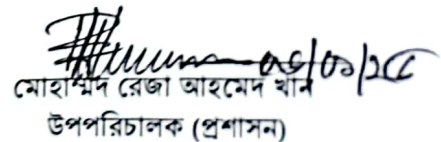 ০৬/০১/২৫
মোহাম্মদ রেজা আহমেদ খান
উপপরিচালক (প্রশাসন)